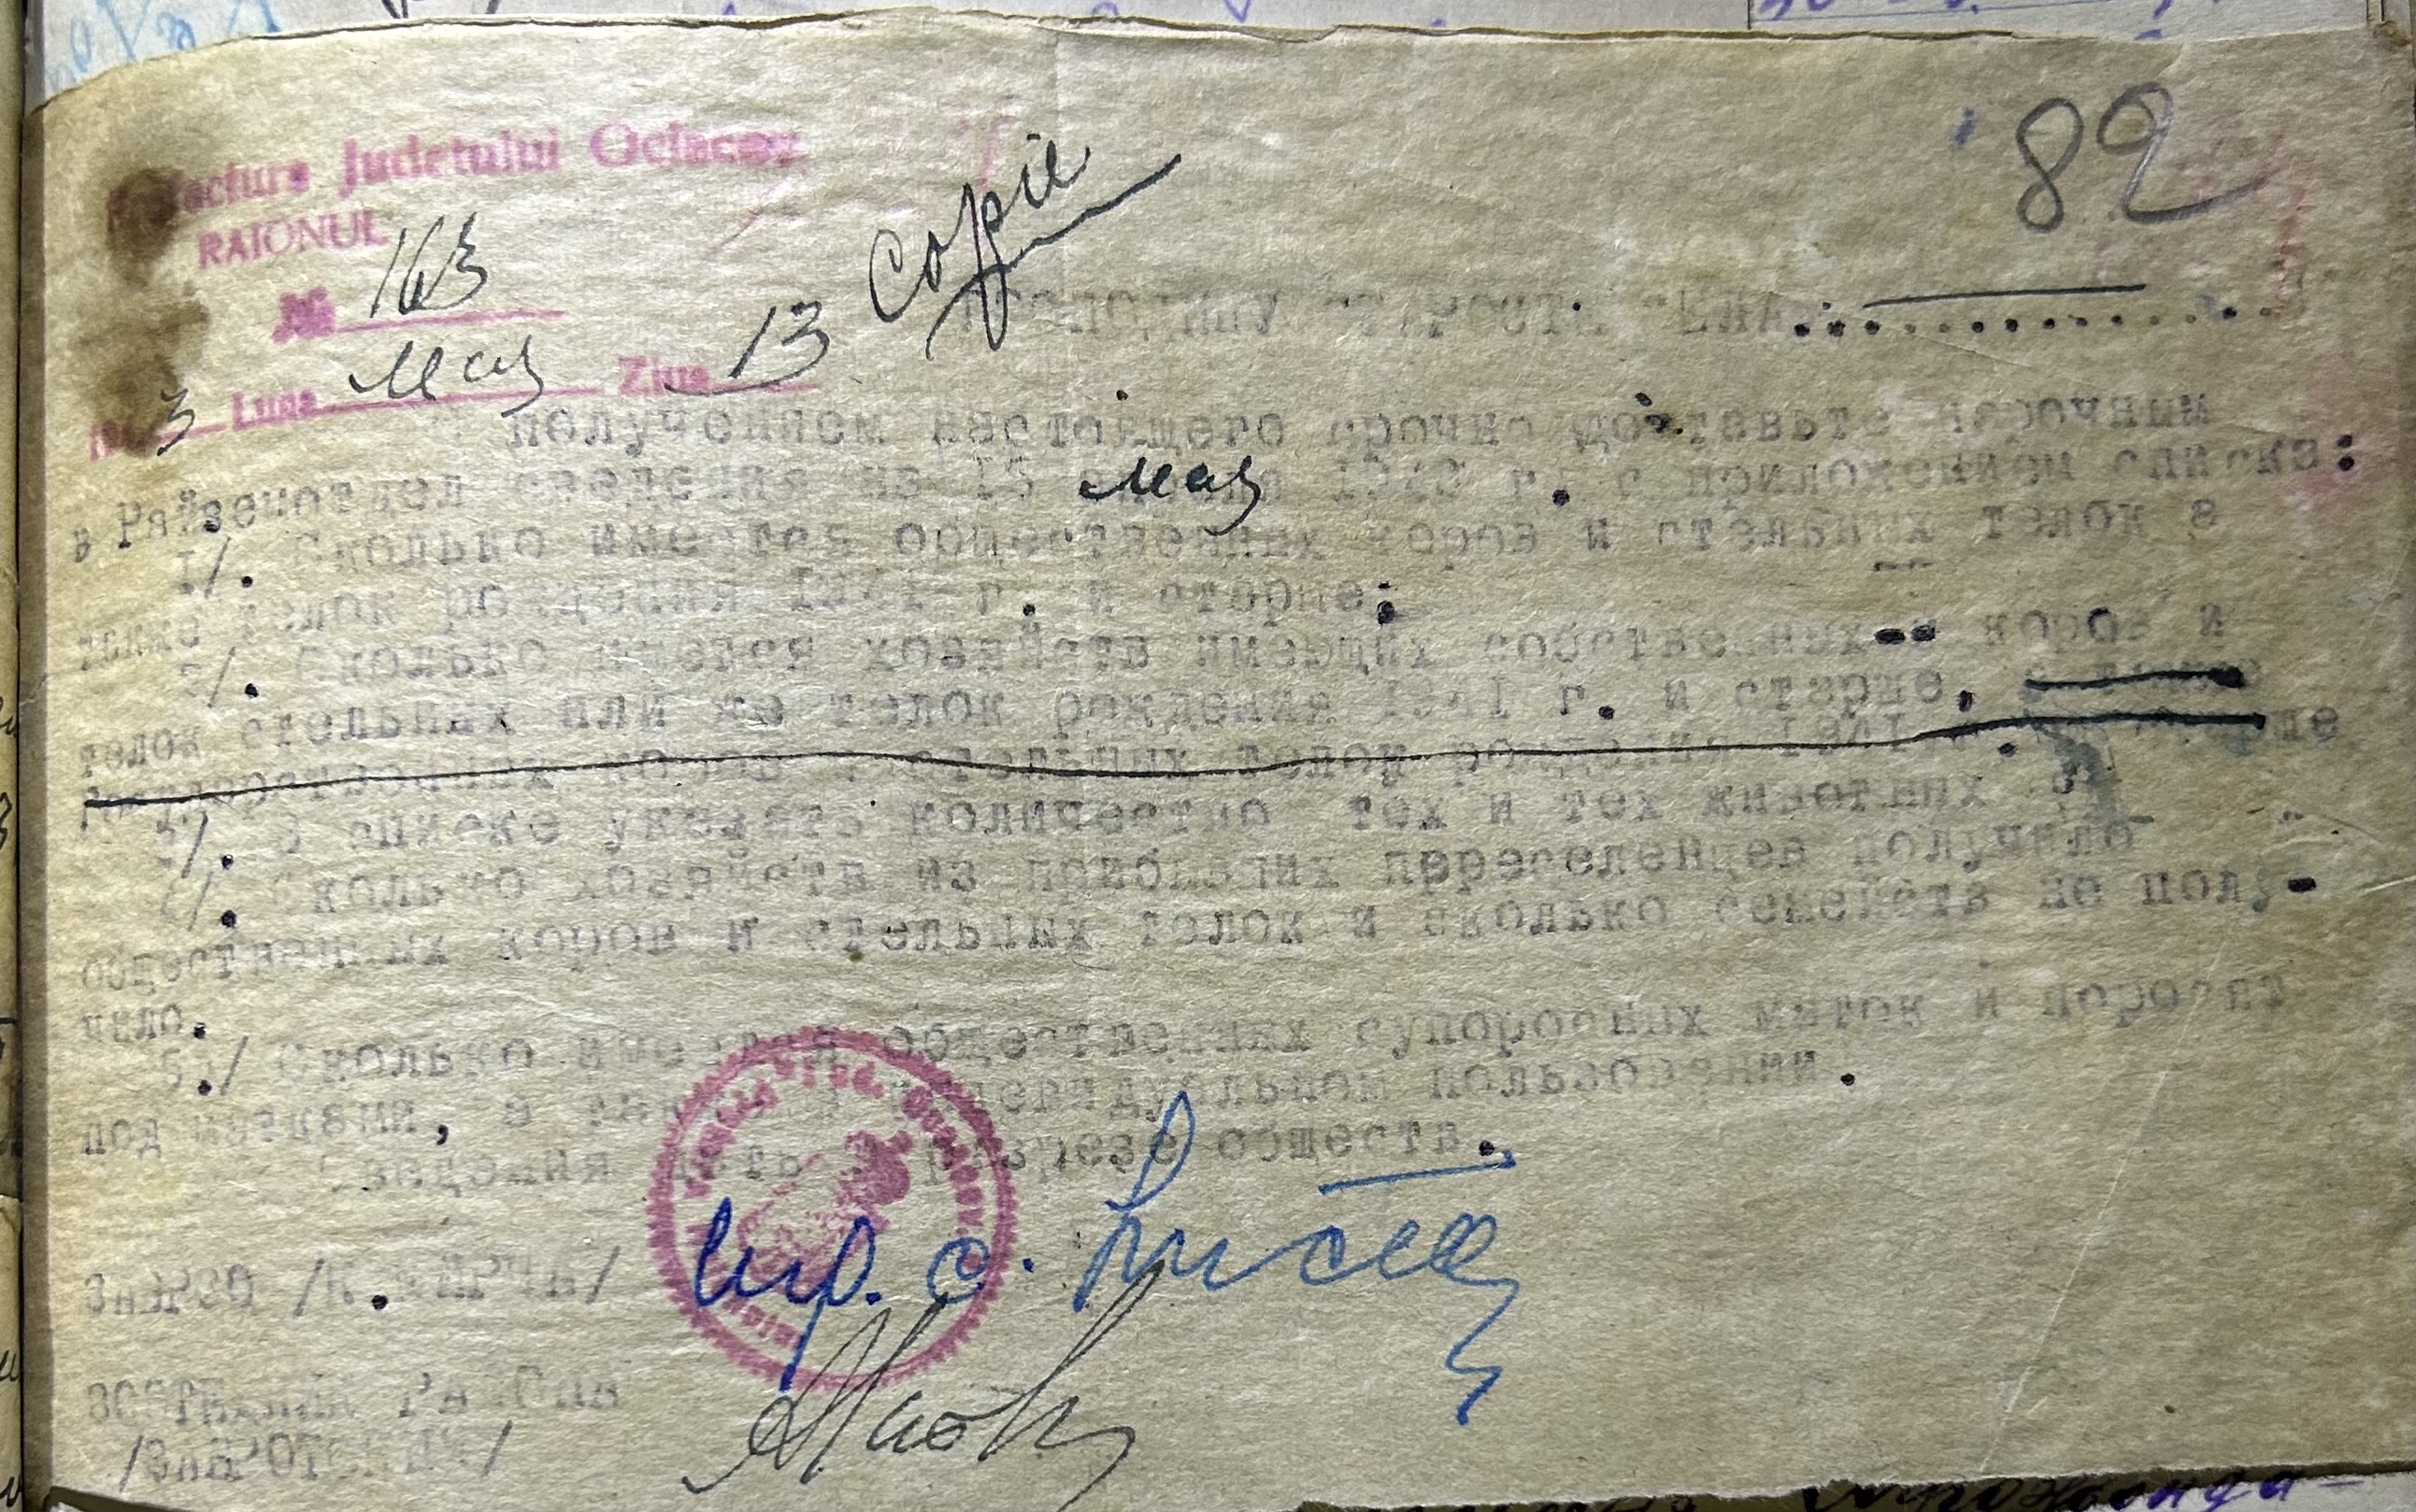 Prefectura Judetului Oceacov
RAIONUL
№ 163
1943 Luna мая Ziua 13
Copie
82
Господину старосте села..............
С получением настоящего срочно доставьте нарочным
в Райземотдел сведения на 15 мая 1943 г. с приложением списка:
1/. Сколько имеется общественных коров и стельных телок а
также телок рождения 1941 г. и старше;
2/. Сколько имеется хозяйств имеющих собственных-- коров и
телок стельных или же телок рождения 1941 г. и старше, а также
коров и стельных телок рождения 1941 г. и старше
3/. В списке указать количество тех и тех животных
4/. Сколько хозяйств из прибывших переселенцев получило
общественных коров и стельных телок и сколько семейств не полу-
чило.
5./ Сколько имеется общественных супоросных маток и поросят
под матками, а также в индивидуальном пользовании.
Сведения дать в разрезе обществ.
ЗАВРЗО